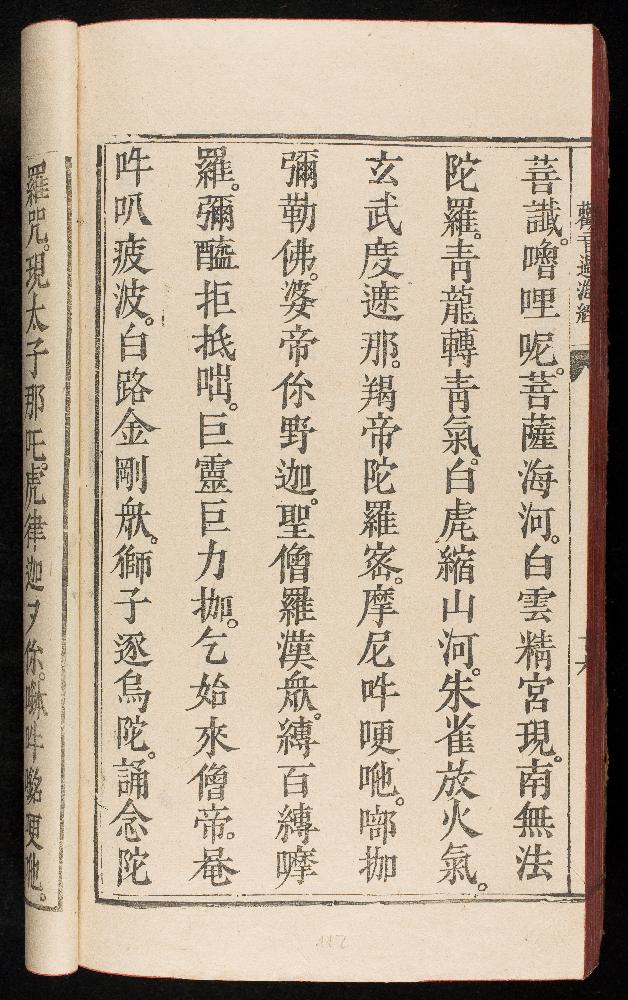 菩讖。噜哩呢。菩薩海河。白雲精宮現。南無法
陀羅。青龍轉青氣。白虎縮山河。朱雀放火氣。
玄武度遮那。羯帝陀羅密。摩尼吽哽吔。啷拁
彌勒佛。婆帝你野迦。聖僧羅漢衆。縛百縛嚤
羅。彌醯拒抵咄。巨靈巨力拁。乞始來僧帝。菴
吽叭疲波。白路金剛衆。獅子逐烏陀。誦念陀
羅咒。現太子那吒。虎律迦歹你。吽哽吔。